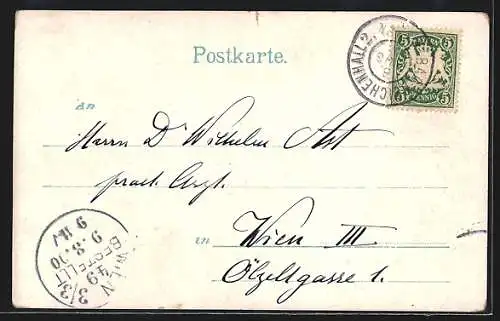 Postkarte.
BAYERN
5 5
5 PFENNIG 5
An
Herrn Dr Wilhelm Ast
pract. Arzt.
in Wien III
Ölzeltgasse 1.
WIEN
3/3 49
BESTELLT
9.8.00
9